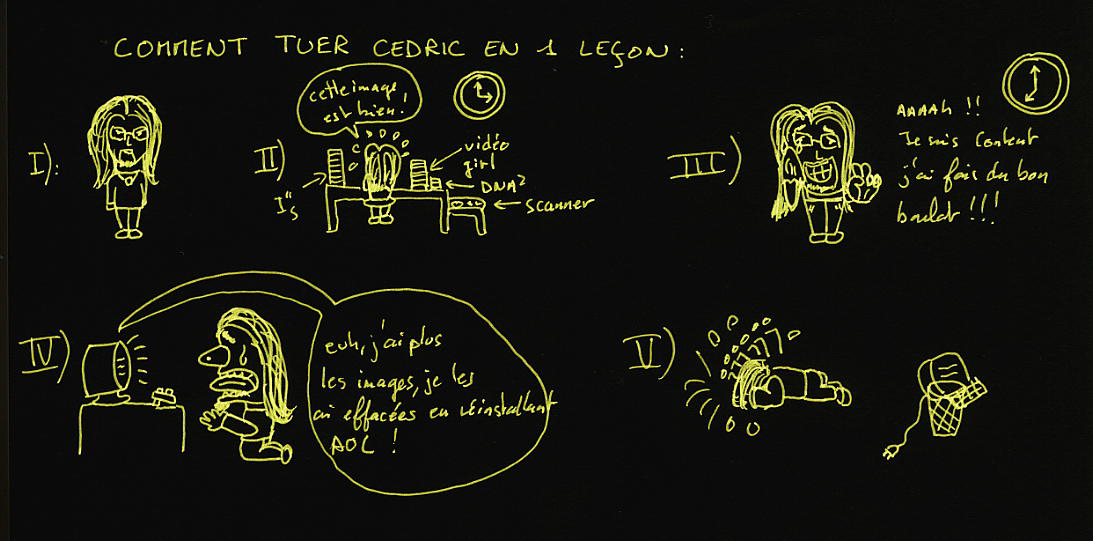 COMMENT TUER CEDRIC EN 1 LEÇON :
I):
II)
cette image
est bien !
vidéo
girl
DNA²
scanner
I"s
III)
AAAAh !!
Je suis content
j'ai fais du bon
boulot !!!
IV)
euh, j'ai plus
les images, je les
ai effacées en réinstallant
AOL !
V)